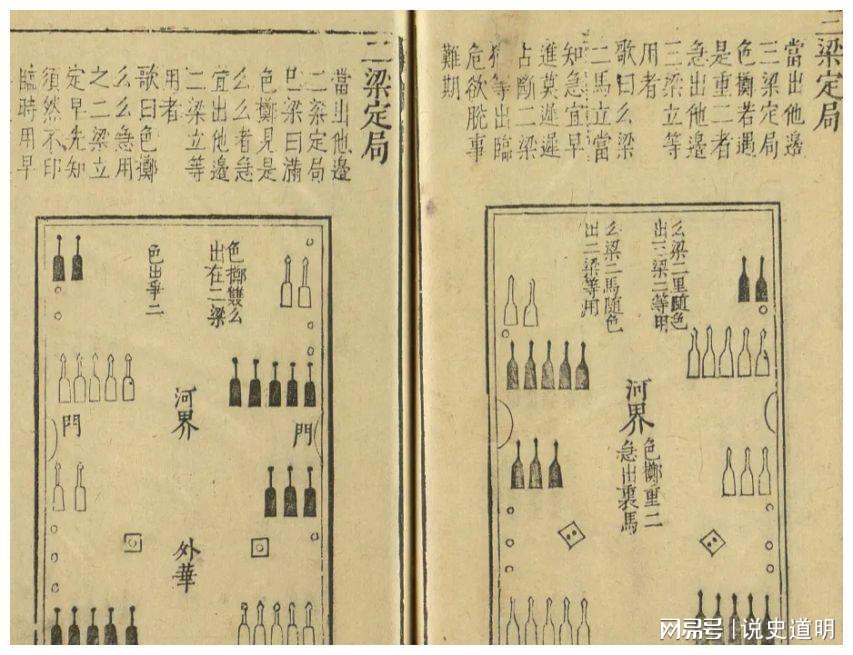 三梁定局
當出他邊
三梁定局
色擲若遇
是重二者
急出他邊
三梁立等
用者
歌曰么梁
二馬立當
知急宜早
進莫遲遲
占斷二梁
等出臨
危欲脫事
難期
么梁二里隨色
出三梁二等明
么梁二馬隨色
出二梁等用
河界
色擲重二
急出裏馬
二梁定局
當出他邊
二梁定局
梁曰滿
色擲見是
么么者急
宜出他邊
二梁立等
用者
歌曰色擲
么么急用
之二梁立
定早先知
須然不印
臨時用早
色擲雙么
出在二梁
色出爭二
門
河界
門
外華
网易号 | 说史道明